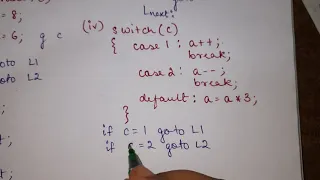 = 8;
= 6; g c
oto L1
oto L2
Lnext:
(iv) switch(c)
{ case 1 : a++;
break;
case 2 : a--;
break;
default : a = a * 3;
}
if c = 1 goto L1
if c = 2 goto L2